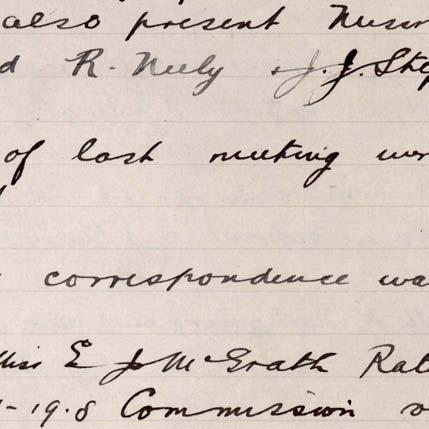 also present Messr
d R. Neely & J. J. Step
of last meeting wer
correspondence wa
Miss E J McGrath Rat
- 19.8 Commission o